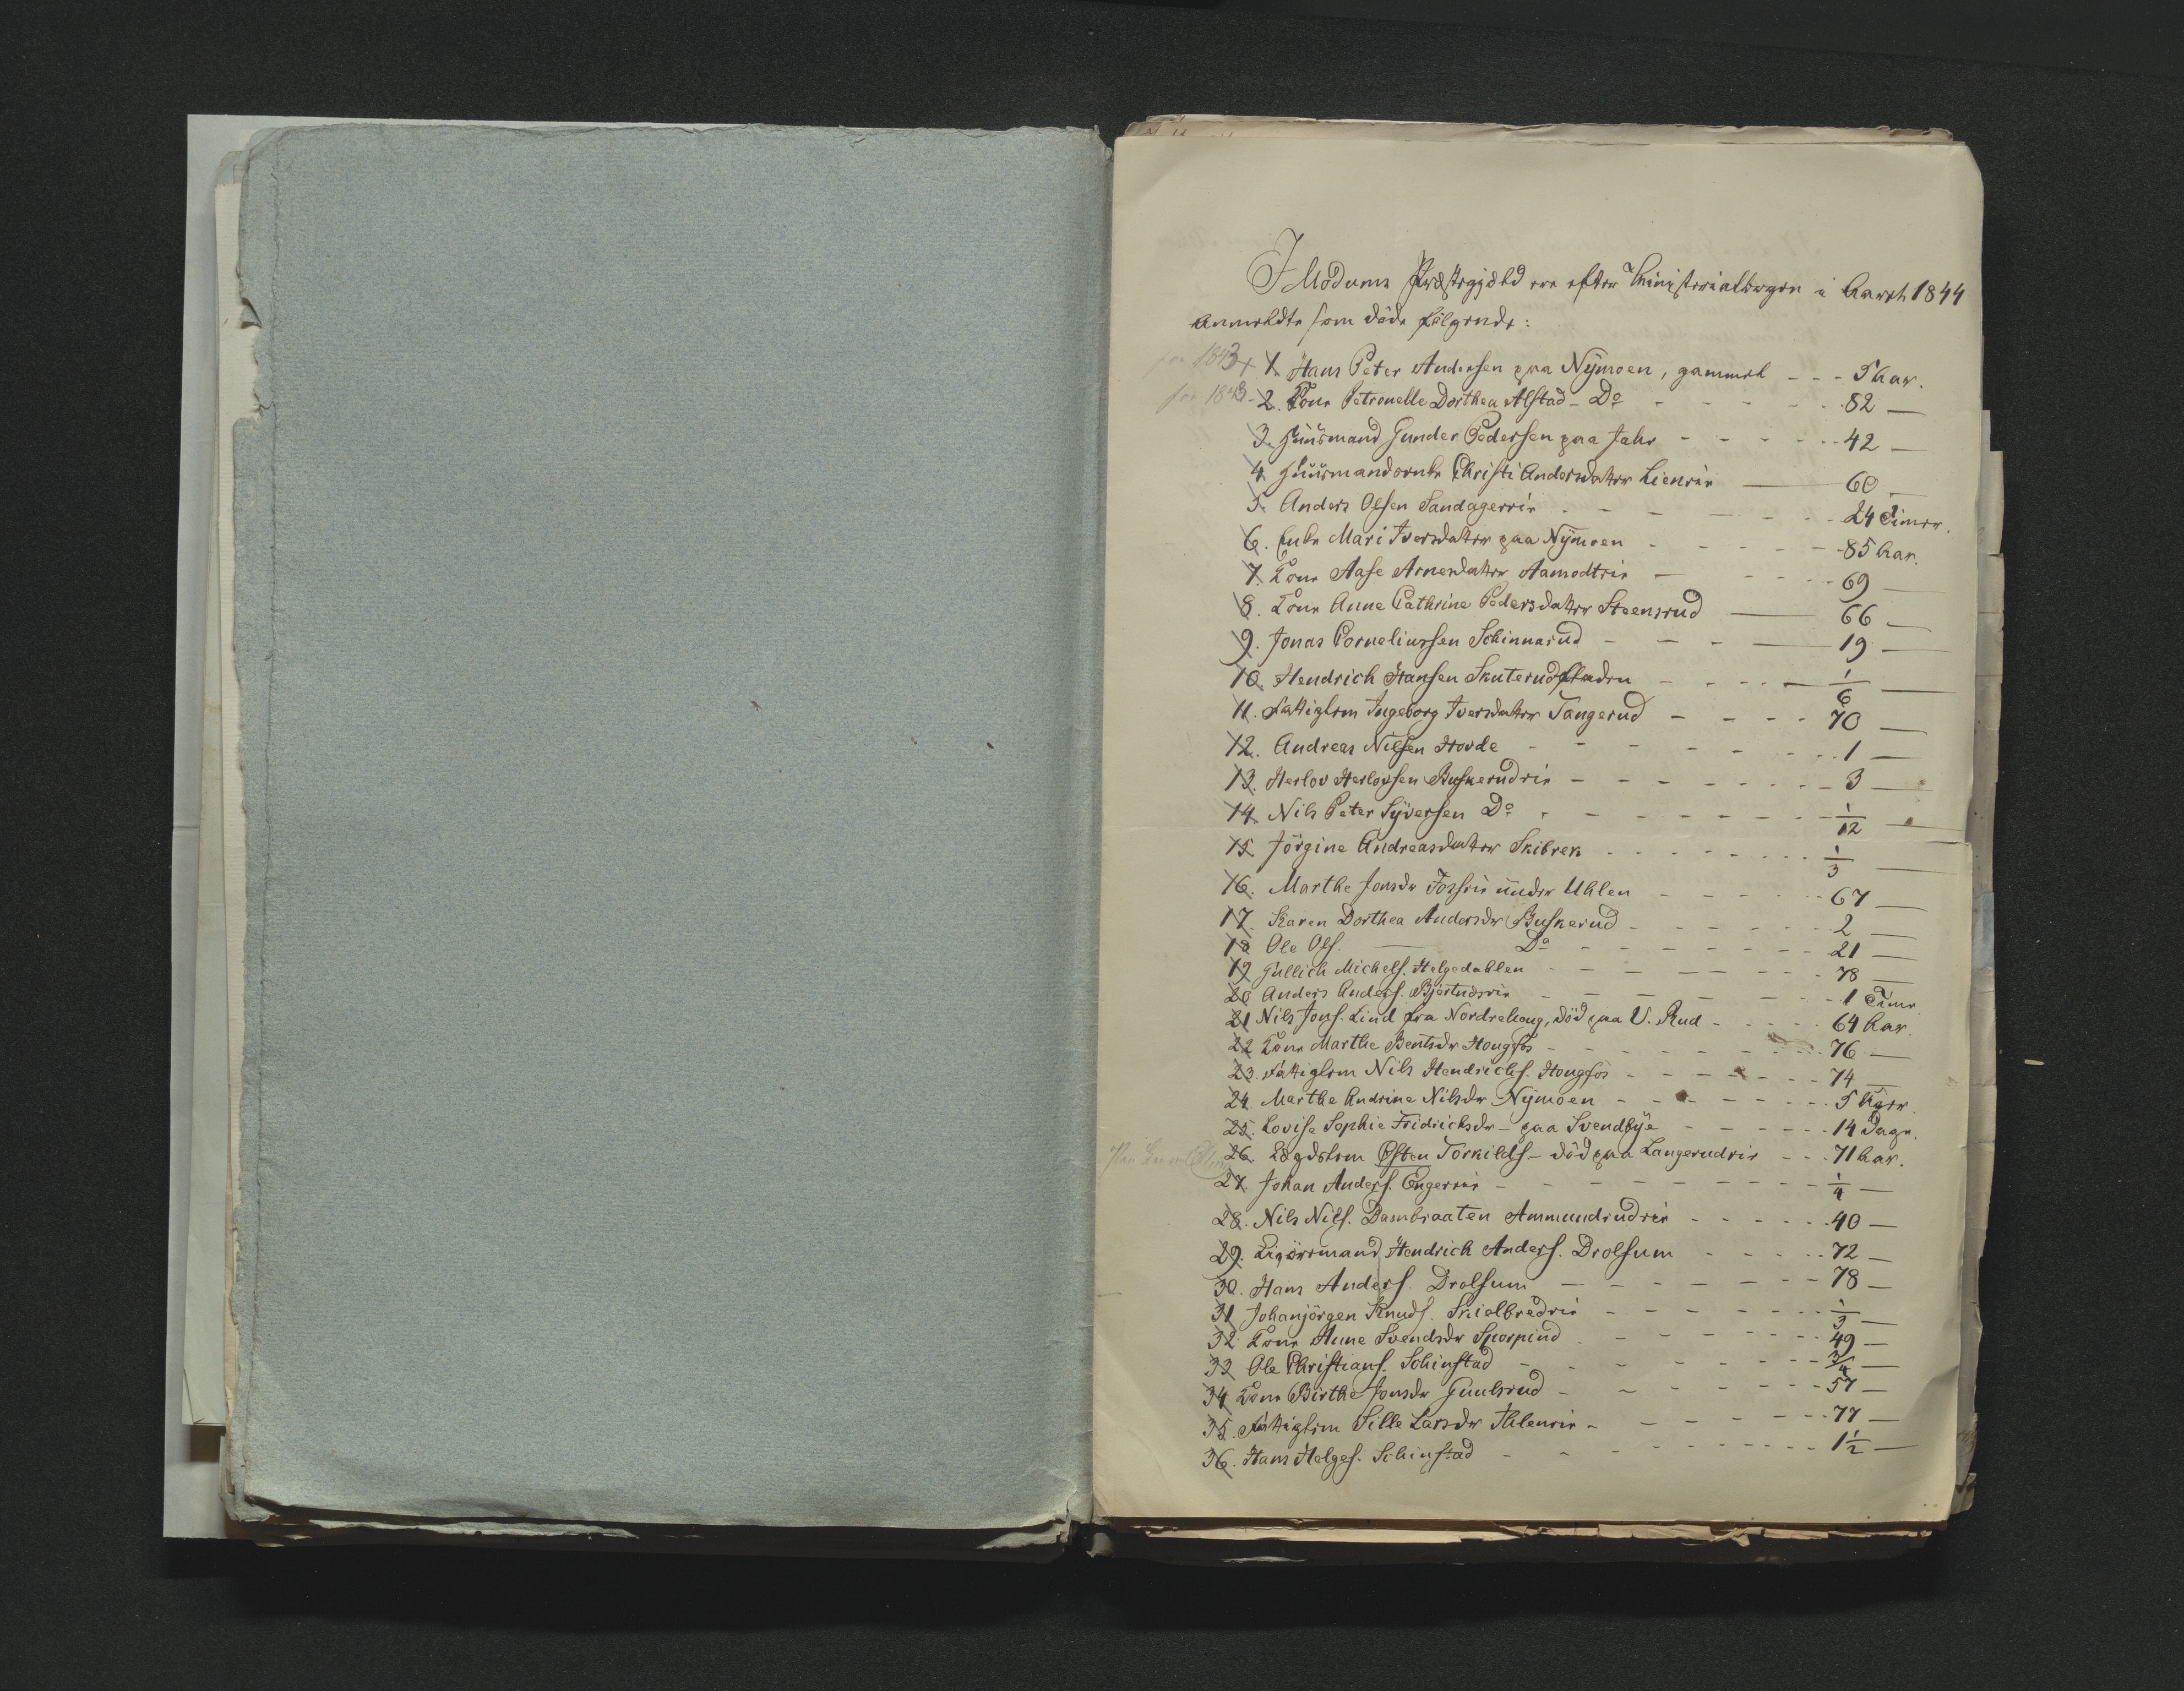 I Modums Præstegjeld ere efter Ministerialbogen i Aaret 1844
anmeldte som døde følgende:
for 1843 + 1. Hans Peter Andersen paa Nymoen, gammel - - - 5 Aar.
for 1843 - 2. Kone Petronelle Dorthea Alstad - Do - - - 82 —
3. Huusmand Gunder Pedersen paa Jahr - - - 42 —
4. Huusmandsenke Christi Andersdatter Lieneie — 60 —
5. Anders Olsen Sandagereie - - - 24 Timer.
6. Enke Mari Iversdatter paa Nymoen - - - 85 Aar.
7. Kone Aase Arnesdatter Aamodteie - - - 69 —
8. Kone Anne Cathrine Pedersdatter Steensrud — 66 —
9. Jonas Corneliussen Schinnarud - - - 19 —
10. Hendrich Hansen Skuterudfladen - - - 1/6 —
11. Fattiglem Ingeborg Iversdatter Tangerud - - - 70 —
12. Andreas Nilsen Hovde - - - 1 —
13. Herlov Herlovsen Buskerudeie - - - 3 —
14. Nils Peter Syversen Do - - - 1/12 —
15. Jørgine Andreasdatter Skibrek - - - 1/3 —
16. Marthe Jonsdr Fosseie under Uhlen - - - 67 —
17. Karen Dorthea Andersdr Buskerud - - - 2 —
18. Ole Ols. — Do - - - 21 —
19. Gullich Michels. Helgedahlen - - - 78 —
20. Anders Anders. Bjertudseie - - - 1 Time
21. Nils Jons. Lind fra Nordrehoug, død paa V. Rud - - - 64 Aar.
22. Kone Marthe Bentsdr Hougfos - - - 76 —
23. Fattiglem Nils Hendrichs. Hougfos - - - 74 —
24. Marthe Andrine Nilsdr Nymoen - - - 5 Uger.
25. Lovise Sophie Fridrichsdr - paa Svendbye - - - 14 Dage.
26. Lægdslem Østen Torkilds - død paa Langerudeie - - - 71 Aar.
27. Johan Anders. Engereie - - - 1/4 —
28. Nils Nils. Dambraaten Ammundrudeie - - - 40 —
29. Ligørsmand Hendrich Anders. Drolsum - - - 72 —
30. Hans Anders. Drolsum - - - 78 —
31. Johanjørgen Knuds. Skielbredeie - - - 1/3 —
32. Kone Anne Svendsdr Sporpind - - - 49 —
33. Ole Christians. Schinstad - - - 3/4 —
34. Kone Birthe Jonsdr Guulsrud - - - 57 —
35. Fattiglem Sille Larsdr Ihleneie - - - 77 —
36. Hans Helges. Schinstad - - - 1 1/2 —